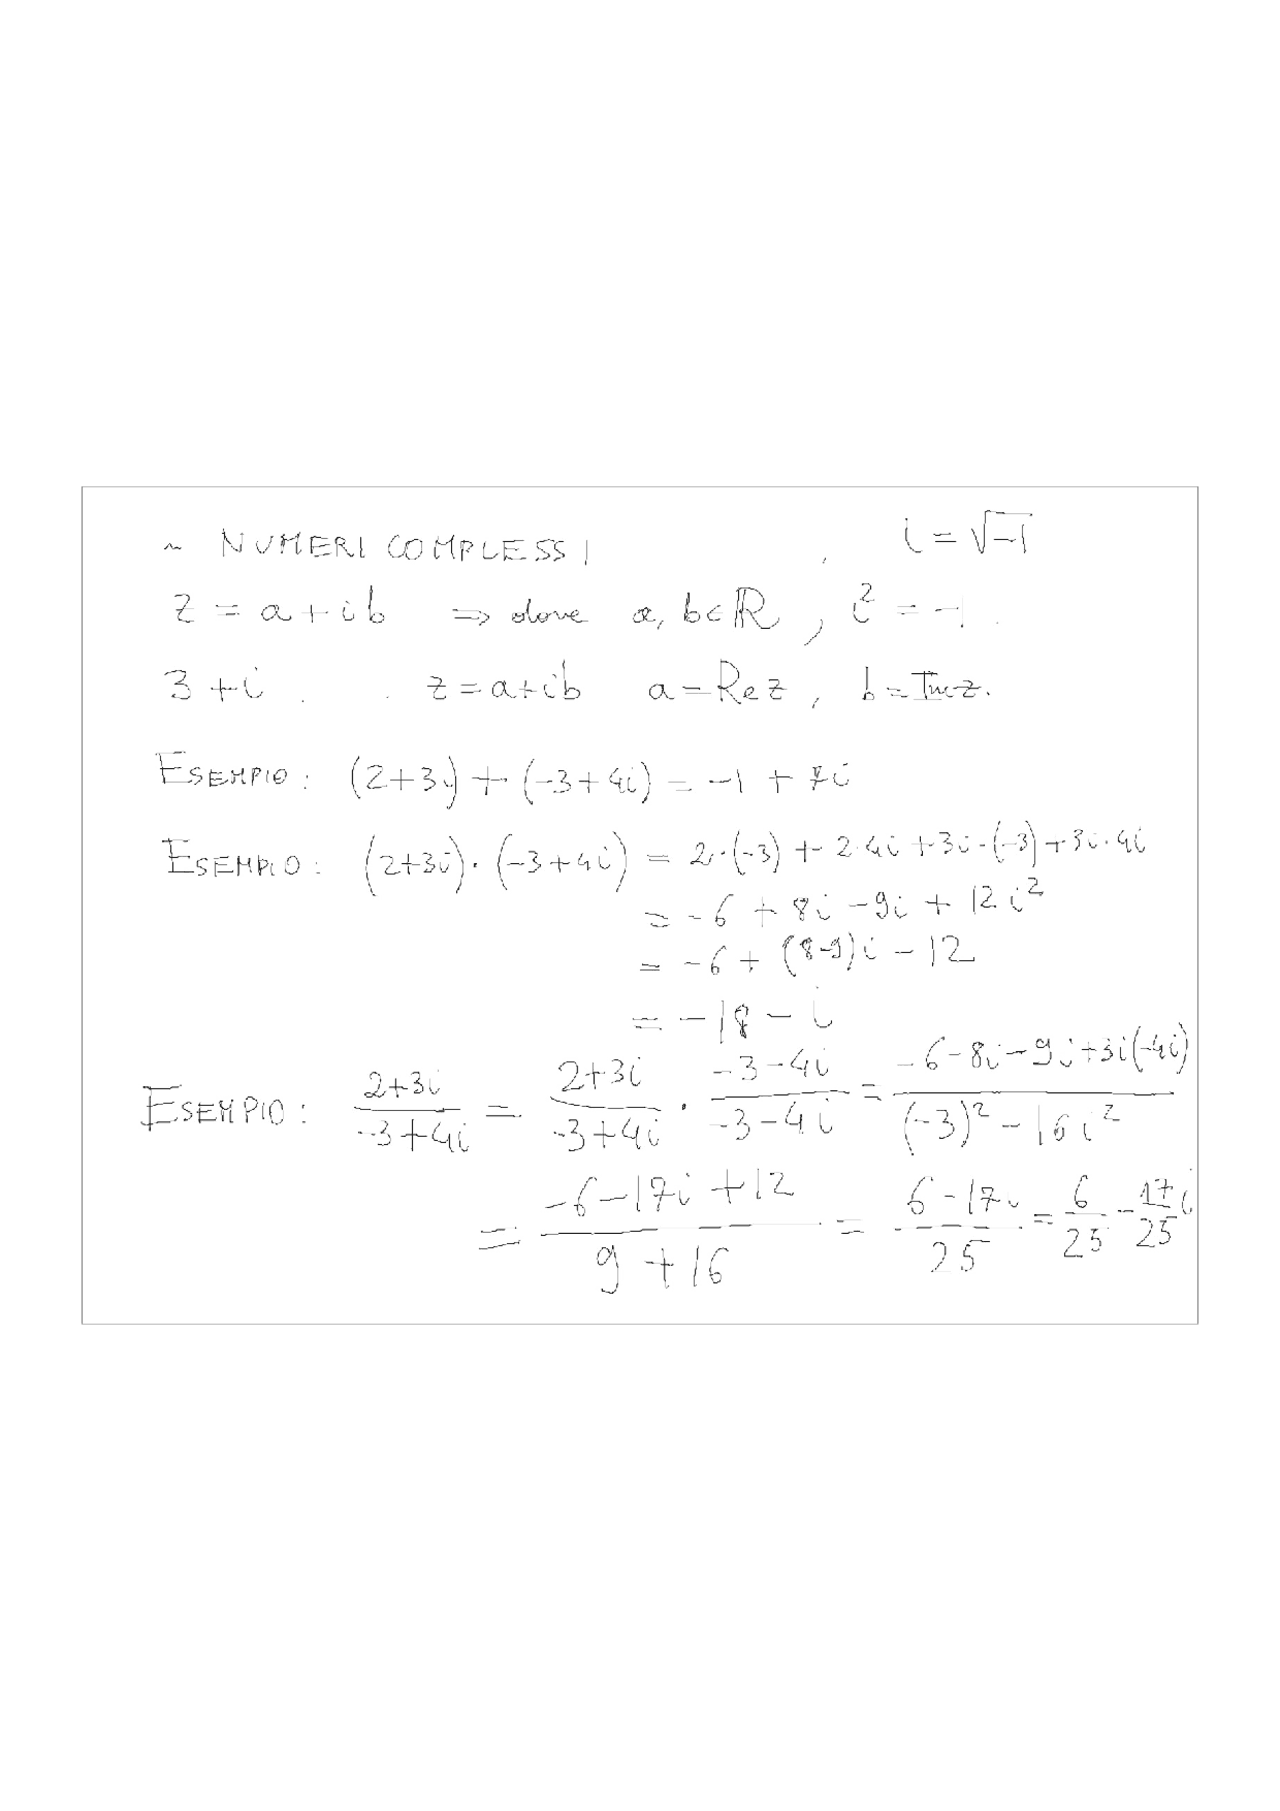 ~ NUMERI COMPLESSI , i = √-1
z = a + i b ⇒ dove a, b ∈ ℝ , i² = -1 .
3 + i . . z = a + ib a = Re z , b = Im z.
ESEMPIO : (2+3i) + (-3+4i) = -1 + 7i
ESEMPIO : (2+3i) · (-3+4i) = 2·(-3) + 2·4i + 3i·(-3) + 3i·4i
= -6 + 8i - 9i + 12 i²
= -6 + (8-9)i - 12
= -18 - i
ESEMPIO : (2+3i)/(-3+4i) = (2+3i)/(-3+4i) · (-3-4i)/(-3-4i) = (-6-8i-9i+3i(-4i))/((-3)² - 16 i²)
= (-6-17i+12)/(9+16) = (6-17i)/25 = 6/25 - 17/25 i